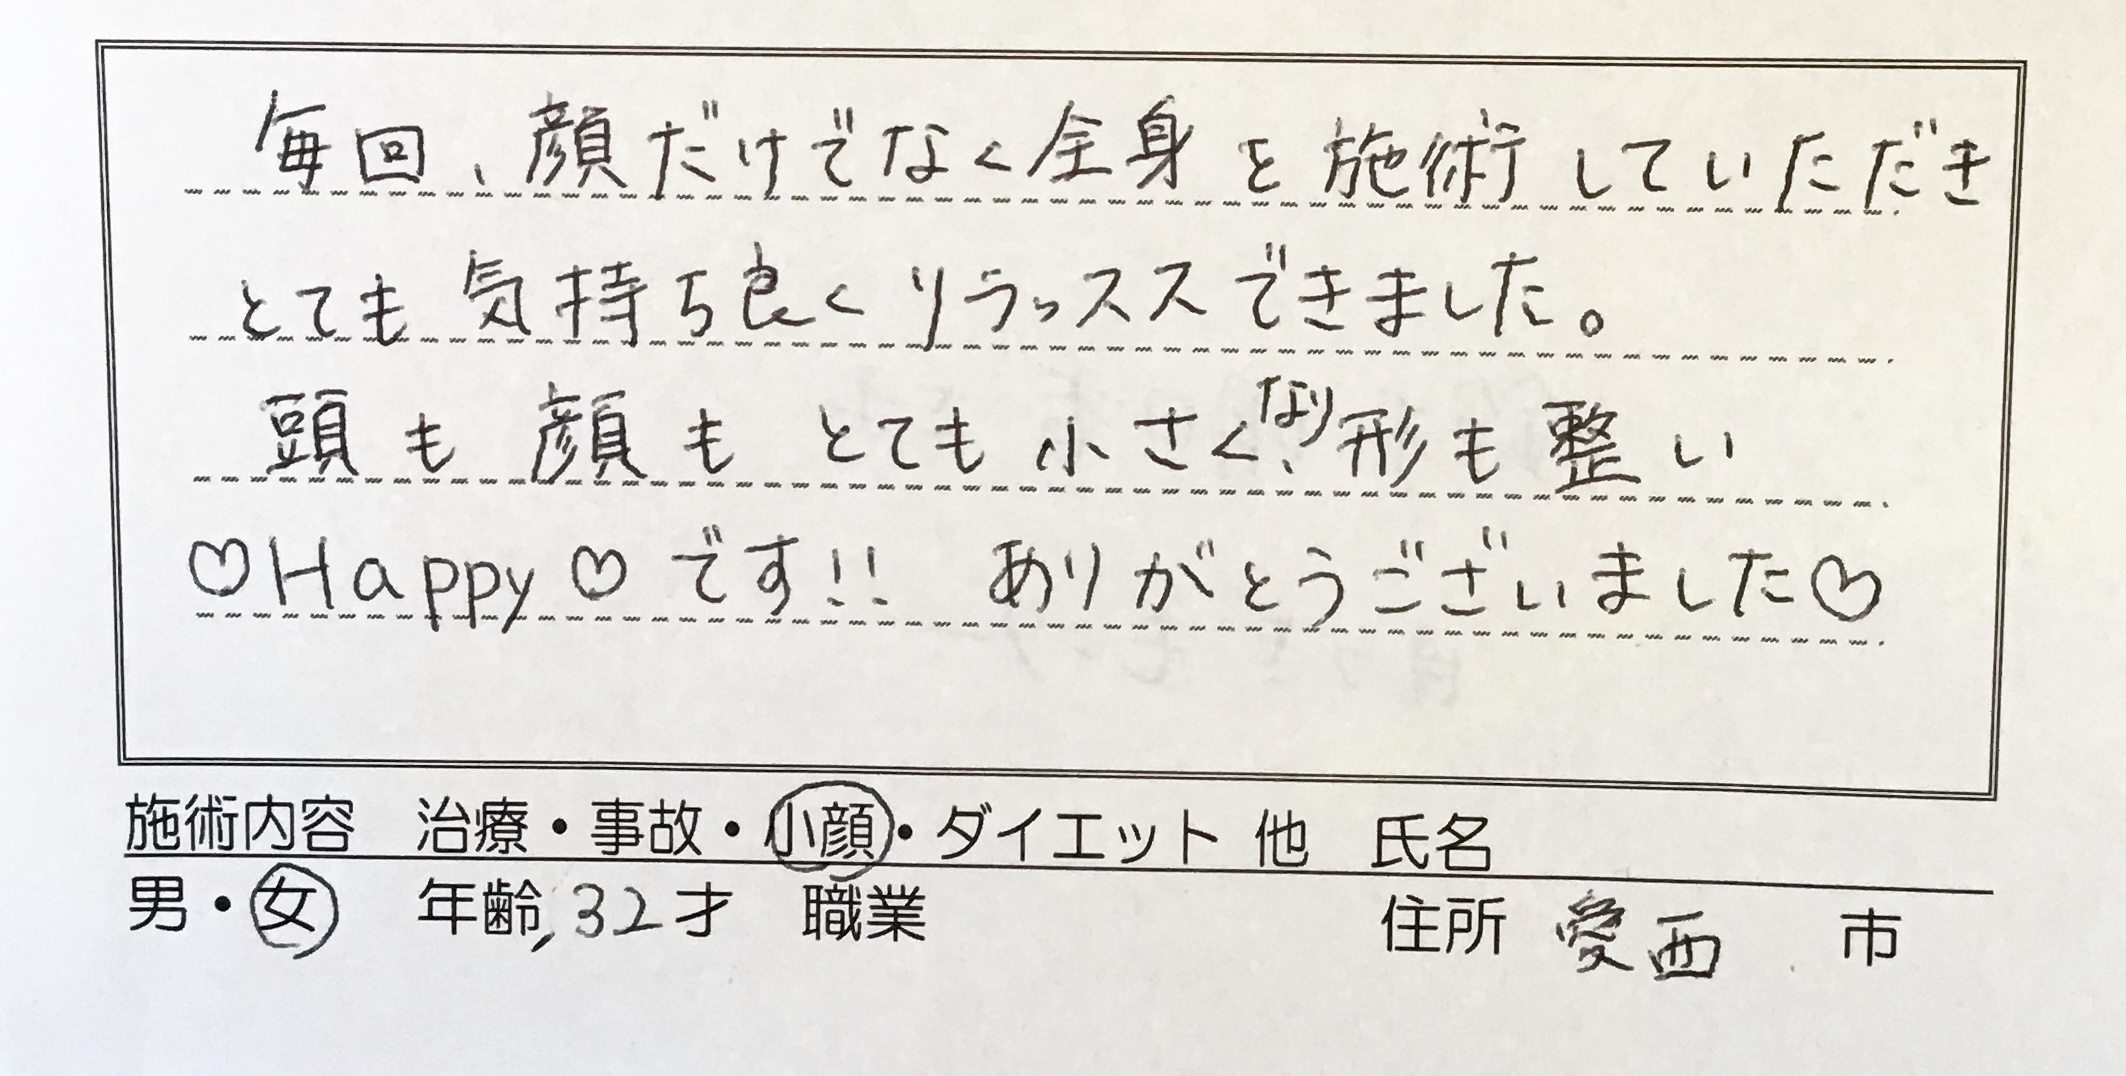 毎回、顔だけでなく全身を施術していただき
とても気持ち良くリラッススできました。
頭も顔もとても小さくなり、形も整い
♡Happy♡です!! ありがとうございました♡
施術内容 治療・事故・小顔・ダイエット 他 氏名
男・女 年齢 32才 職業 住所 愛西 市